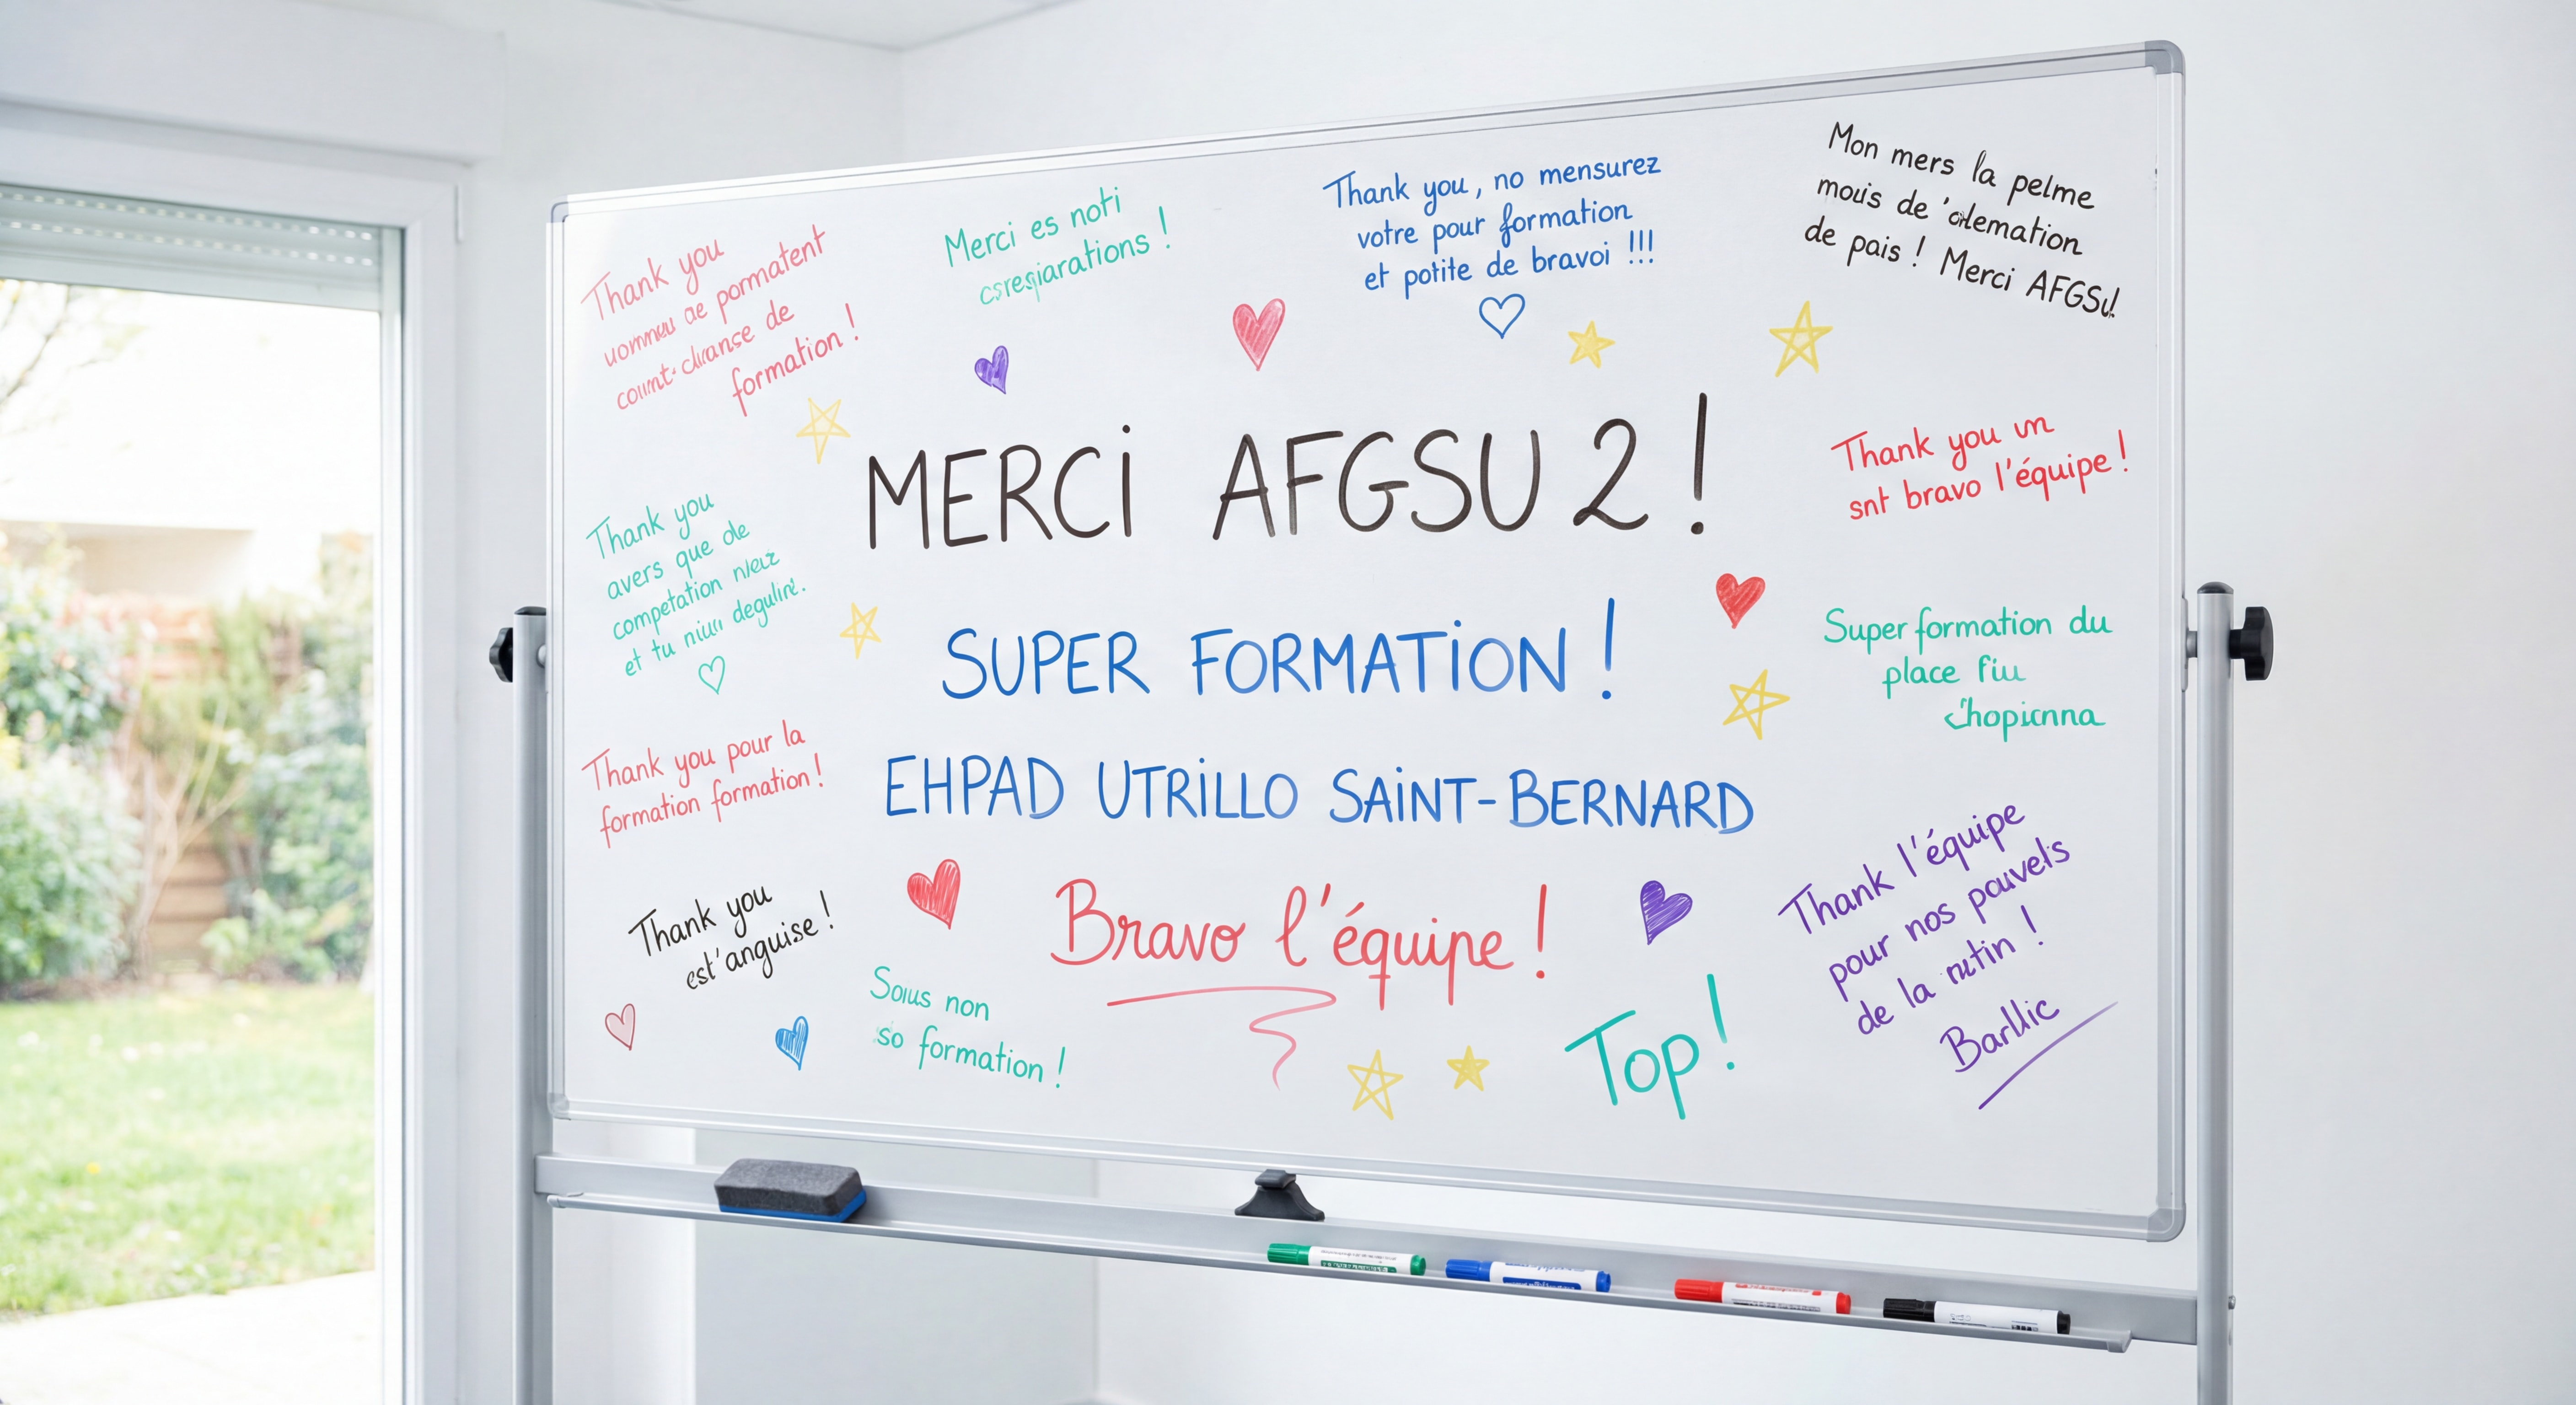 Thank you
de pormatent
de
formation !
Merci es noti
csresiarations !
Thank you, no mensurez
votre pour formation
et potite de bravoi !!!
Mon mers la pelme
mouis de
de pais ! Merci AFGSU!
MERCI AFGSU 2 !
Thank you un
snt bravo l'équipe !
Thank you
avers que de
competation
et tu
SUPER FORMATION !
Super formation du
place fiu
Chopicnna
Thank you pour la
formation formation !
EHPAD UTRILLO SAINT-BERNARD
Thank you
est'anguise !
Bravo l'équipe !
Thank l'équipe
pour nos pouvels
de la
Sous non
so formation !
Top !